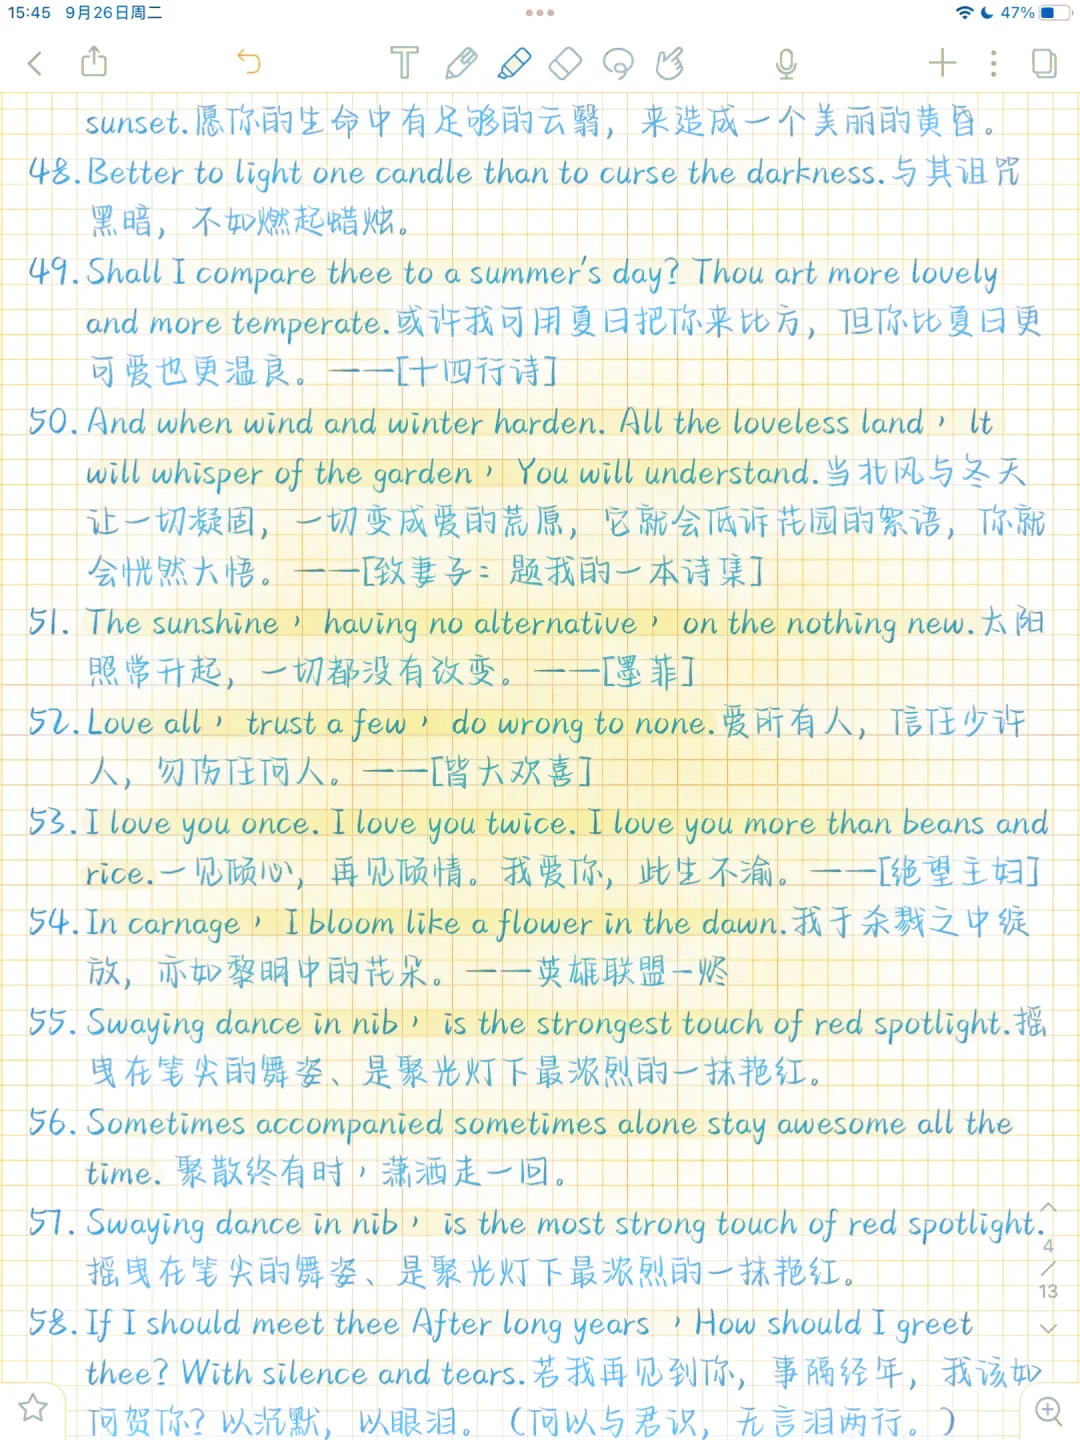 15:45 9月26日周二
47%
sunset.愿你的生命中有足够的云翳，来造成一个美丽的黄昏。
48.Better to light one candle than to curse the darkness.与其诅咒
黑暗，不如燃起蜡烛。
49.Shall I compare thee to a summer's day? Thou art more lovely
and more temperate.或许我可用夏日把你来比方，但你比夏日更
可爱也更温良。——[十四行诗]
50.And when wind and winter harden. All the loveless land，It
will whisper of the garden，You will understand.当北风与冬天
让一切凝固，一切变成爱的荒原，它就会低诉花园的絮语，你就
会恍然大悟。——[致妻子：题我的一本诗集]
51. The sunshine，having no alternative，on the nothing new.太阳
照常升起，一切都没有改变。——[墨菲]
52.Love all，trust a few，do wrong to none.爱所有人，信任少许
人，勿伤任何人。——[皆大欢喜]
53.I love you once. I love you twice. I love you more than beans and
rice.一见倾心，再见倾情。我爱你，此生不渝。——[绝望主妇]
54.In carnage，I bloom like a flower in the dawn.我于杀戮之中绽
放，亦如黎明中的花朵。——英雄联盟-烬
55. Swaying dance in nib，is the strongest touch of red spotlight.摇
曳在笔尖的舞姿、是聚光灯下最浓烈的一抹艳红。
56.Sometimes accompanied sometimes alone stay awesome all the
time. 聚散终有时，潇洒走一回。
57. Swaying dance in nib，is the most strong touch of red spotlight.
摇曳在笔尖的舞姿、是聚光灯下最浓烈的一抹艳红。
4
/
13
58.If I should meet thee After long years ，How should I greet
thee? With silence and tears.若我再见到你，事隔经年，我该如
何贺你？以沉默，以眼泪。（何以与君识，无言泪两行。）